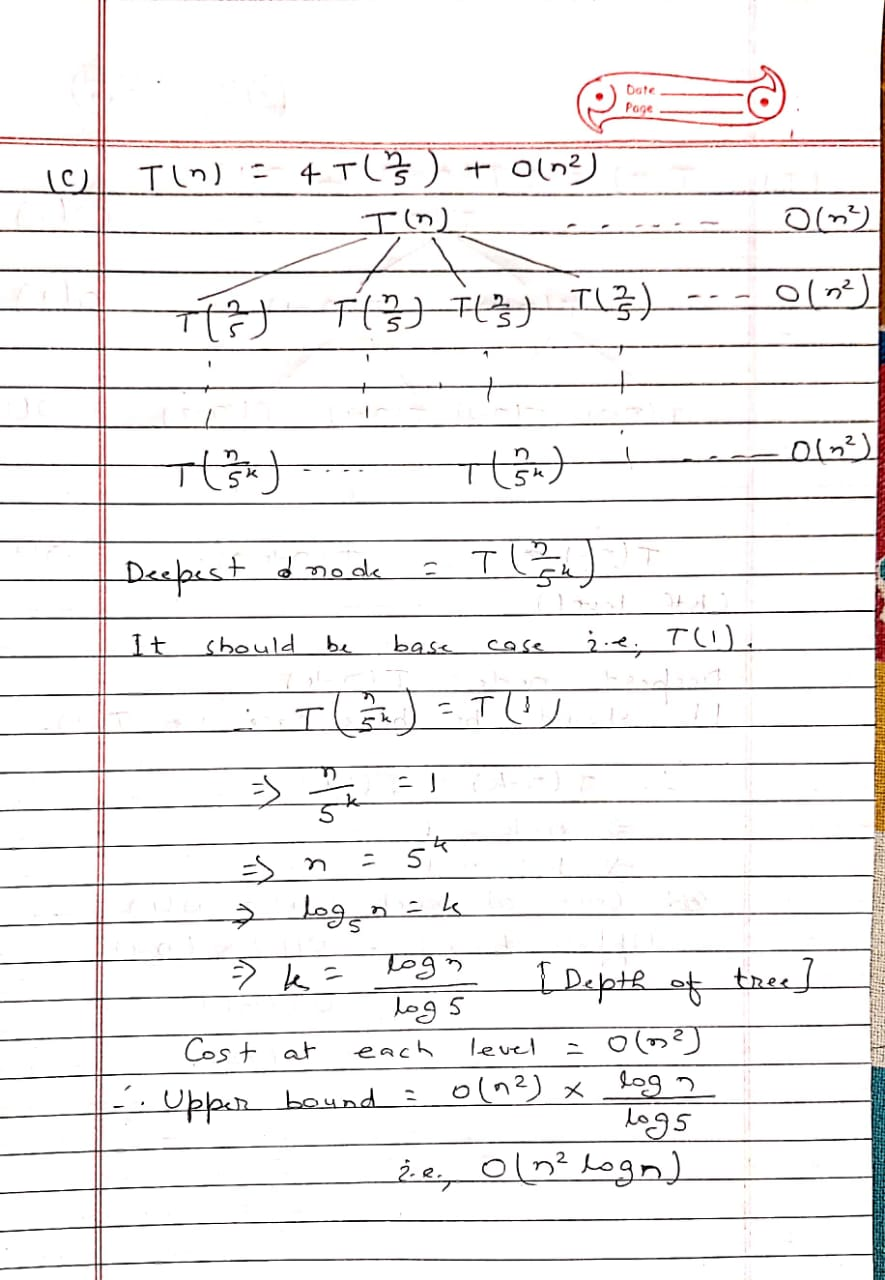 Date
Page
(C) T(n) = 4T(n/5) + O(n²)
T(n) - - - - - - O(n²)
T(n/5) T(n/5) T(n/5) T(n/5) - - - O(n²)
T(n/5ᵏ) - - - - T(n/5ᵏ) - - - - O(n²)
Deepest node = T(n/5ᵏ)
It should be base case i.e, T(1).
∴ T(n/5ᵏ) = T(1)
⇒ n/5ᵏ = 1
⇒ n = 5ᵏ
⇒ log₅ n = k
⇒ k = log n/log 5 [Depth of tree]
Cost at each level = O(n²)
∴ Upper bound = O(n²) × log n/log 5
i.e., O(n² log n)